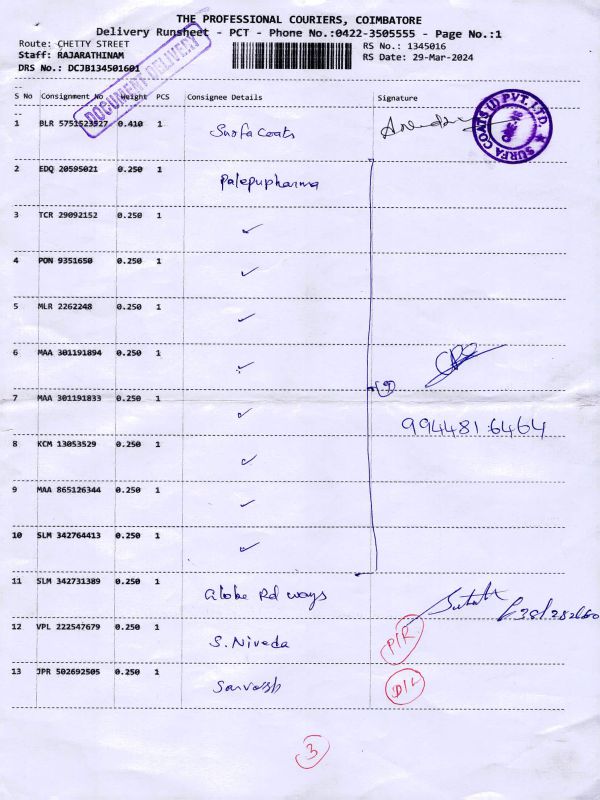 THE PROFESSIONAL COURIERS, COIMBATORE
Delivery Runsheet - PCT - Phone No.:0422-3505555 - Page No.:1
Route: CHETTY STREET RS No.: 1345016
Staff: RAJARATHINAM RS Date: 29-Mar-2024
DRS No.: DCJB134501601
DOCUMENT DELIVERY
S No Consignment No Weight PCS Consignee Details Signature
1 BLR 5751523927 0.410 1 Surfa coats
SURFA COATS (I) PVT. LTD.
2 EDQ 20595021 0.250 1 Palepupharma
3 TCR 29092152 0.250 1 ✓
4 PON 9351650 0.250 1 ✓
5 MLR 2262248 0.250 1 ✓
6 MAA 301191894 0.250 1 ✓
(9)
7 MAA 301191833 0.250 1 ✓ 994481 6464
8 KCM 13053529 0.250 1 ✓
9 MAA 865126344 0.250 1 ✓
10 SLM 342764413 0.250 1 ✓
11 SLM 342731389 0.250 1 Globe Rd ways
12 VPL 222547679 0.250 1 S. Niveda P/R
13 JPR 502692505 0.250 1 D/L
3